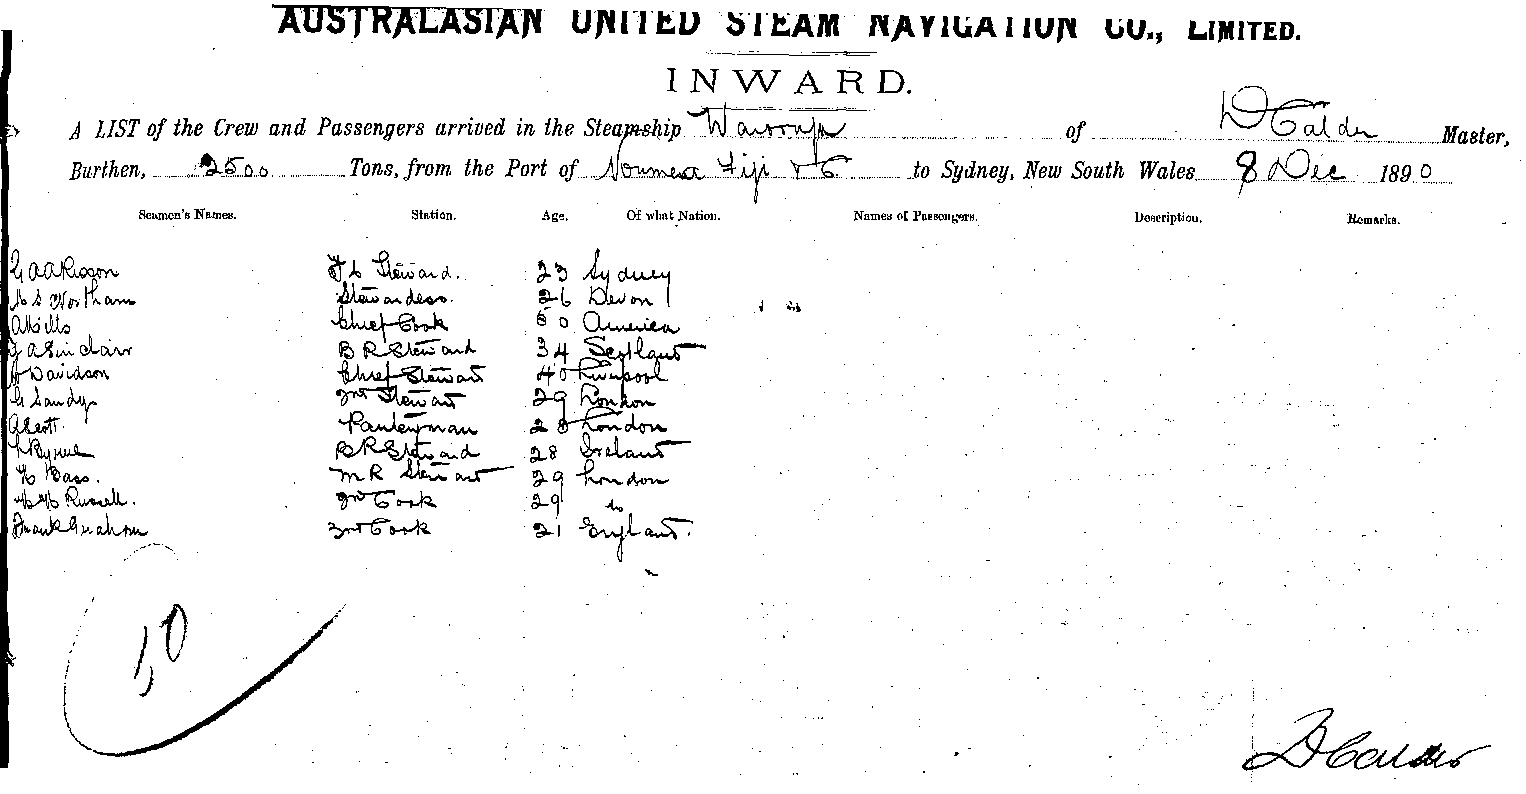 AUSTRALASIAN UNITED STEAM NAVIGATION CO., LIMITED.
INWARD.
A LIST of the Crew and Passengers arrived in the Steamship Warrego of D Calder Master,
Burthen, 2500 Tons, from the Port of Noumea Fiji &c to Sydney, New South Wales 8 Dec 1890
Seamen's Names. Station. Age. Of what Nation. Names of Passengers. Description. Remarks.
F C Steward. 23 Sydney
Northam Stewardess. 26 Devon
A Mills Chief Cook 50 America
J A Sinclair B R Steward 34 Scotland
Davidson Chief Steward 40 Liverpool
G Sandys 2nd Steward 29 London
A Scott. Pantryman 28 London
Byrne B R Steward 28 Ireland
H Bass. M R Steward 29 London
Russell. 2nd Cook 29 do
Frank Graham 3rd Cook 21 England.
10
D Calder